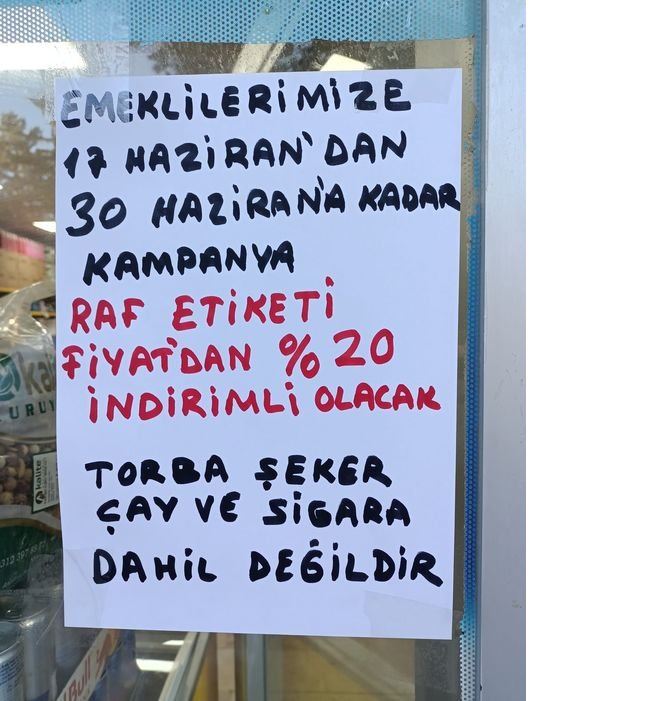 EMEKLİLERİMİZE
17 HAZİRAN'DAN
30 HAZİRAN'A KADAR
KAMPANYA
RAF ETİKETİ
FİYAT'DAN %20
İNDİRİMLİ OLACAK
TORBA ŞEKER
ÇAY VE SİGARA
DAHİL DEĞİLDİR
kalite
Bull